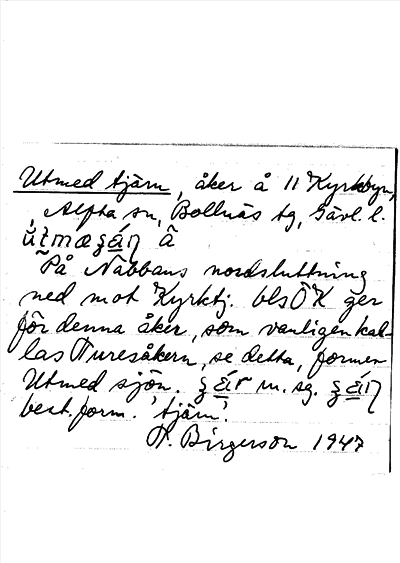 Utmed tjärn, åker å 11 Kyrkbyn,
Alfta sn, Bollnäs tg, Gävl. l.
ŭtmæʒǽıŋ â
På Nabbans nordsluttning
ned mot Kyrktj. bls ÖK ger
för denna åker, som vanligen kal-
las Turesåkern, se detta, formen
Utmed sjön. ʒǽır m. sg. ʒǽıŋ
best. form. 'tjärn'.
T. Birgerson 1947